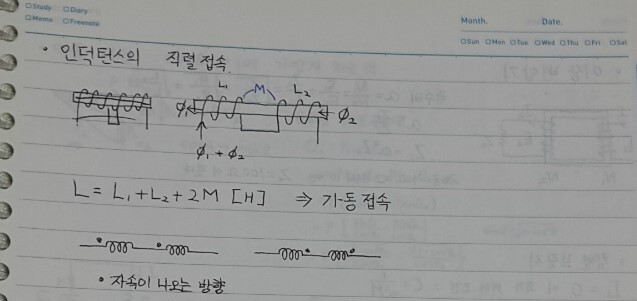 Study Diary
Memo Freenote
Month. Date.
Sun Mon Tue Wed Thu Fri Sat
• 인덕턴스의 직렬접속.
L₁ M L₂
ϕ₁ ϕ₂
ϕ₁ + ϕ₂
L = L₁ + L₂ + 2M [H] ⇒ 가동접속
• 자속이 나오는 방향